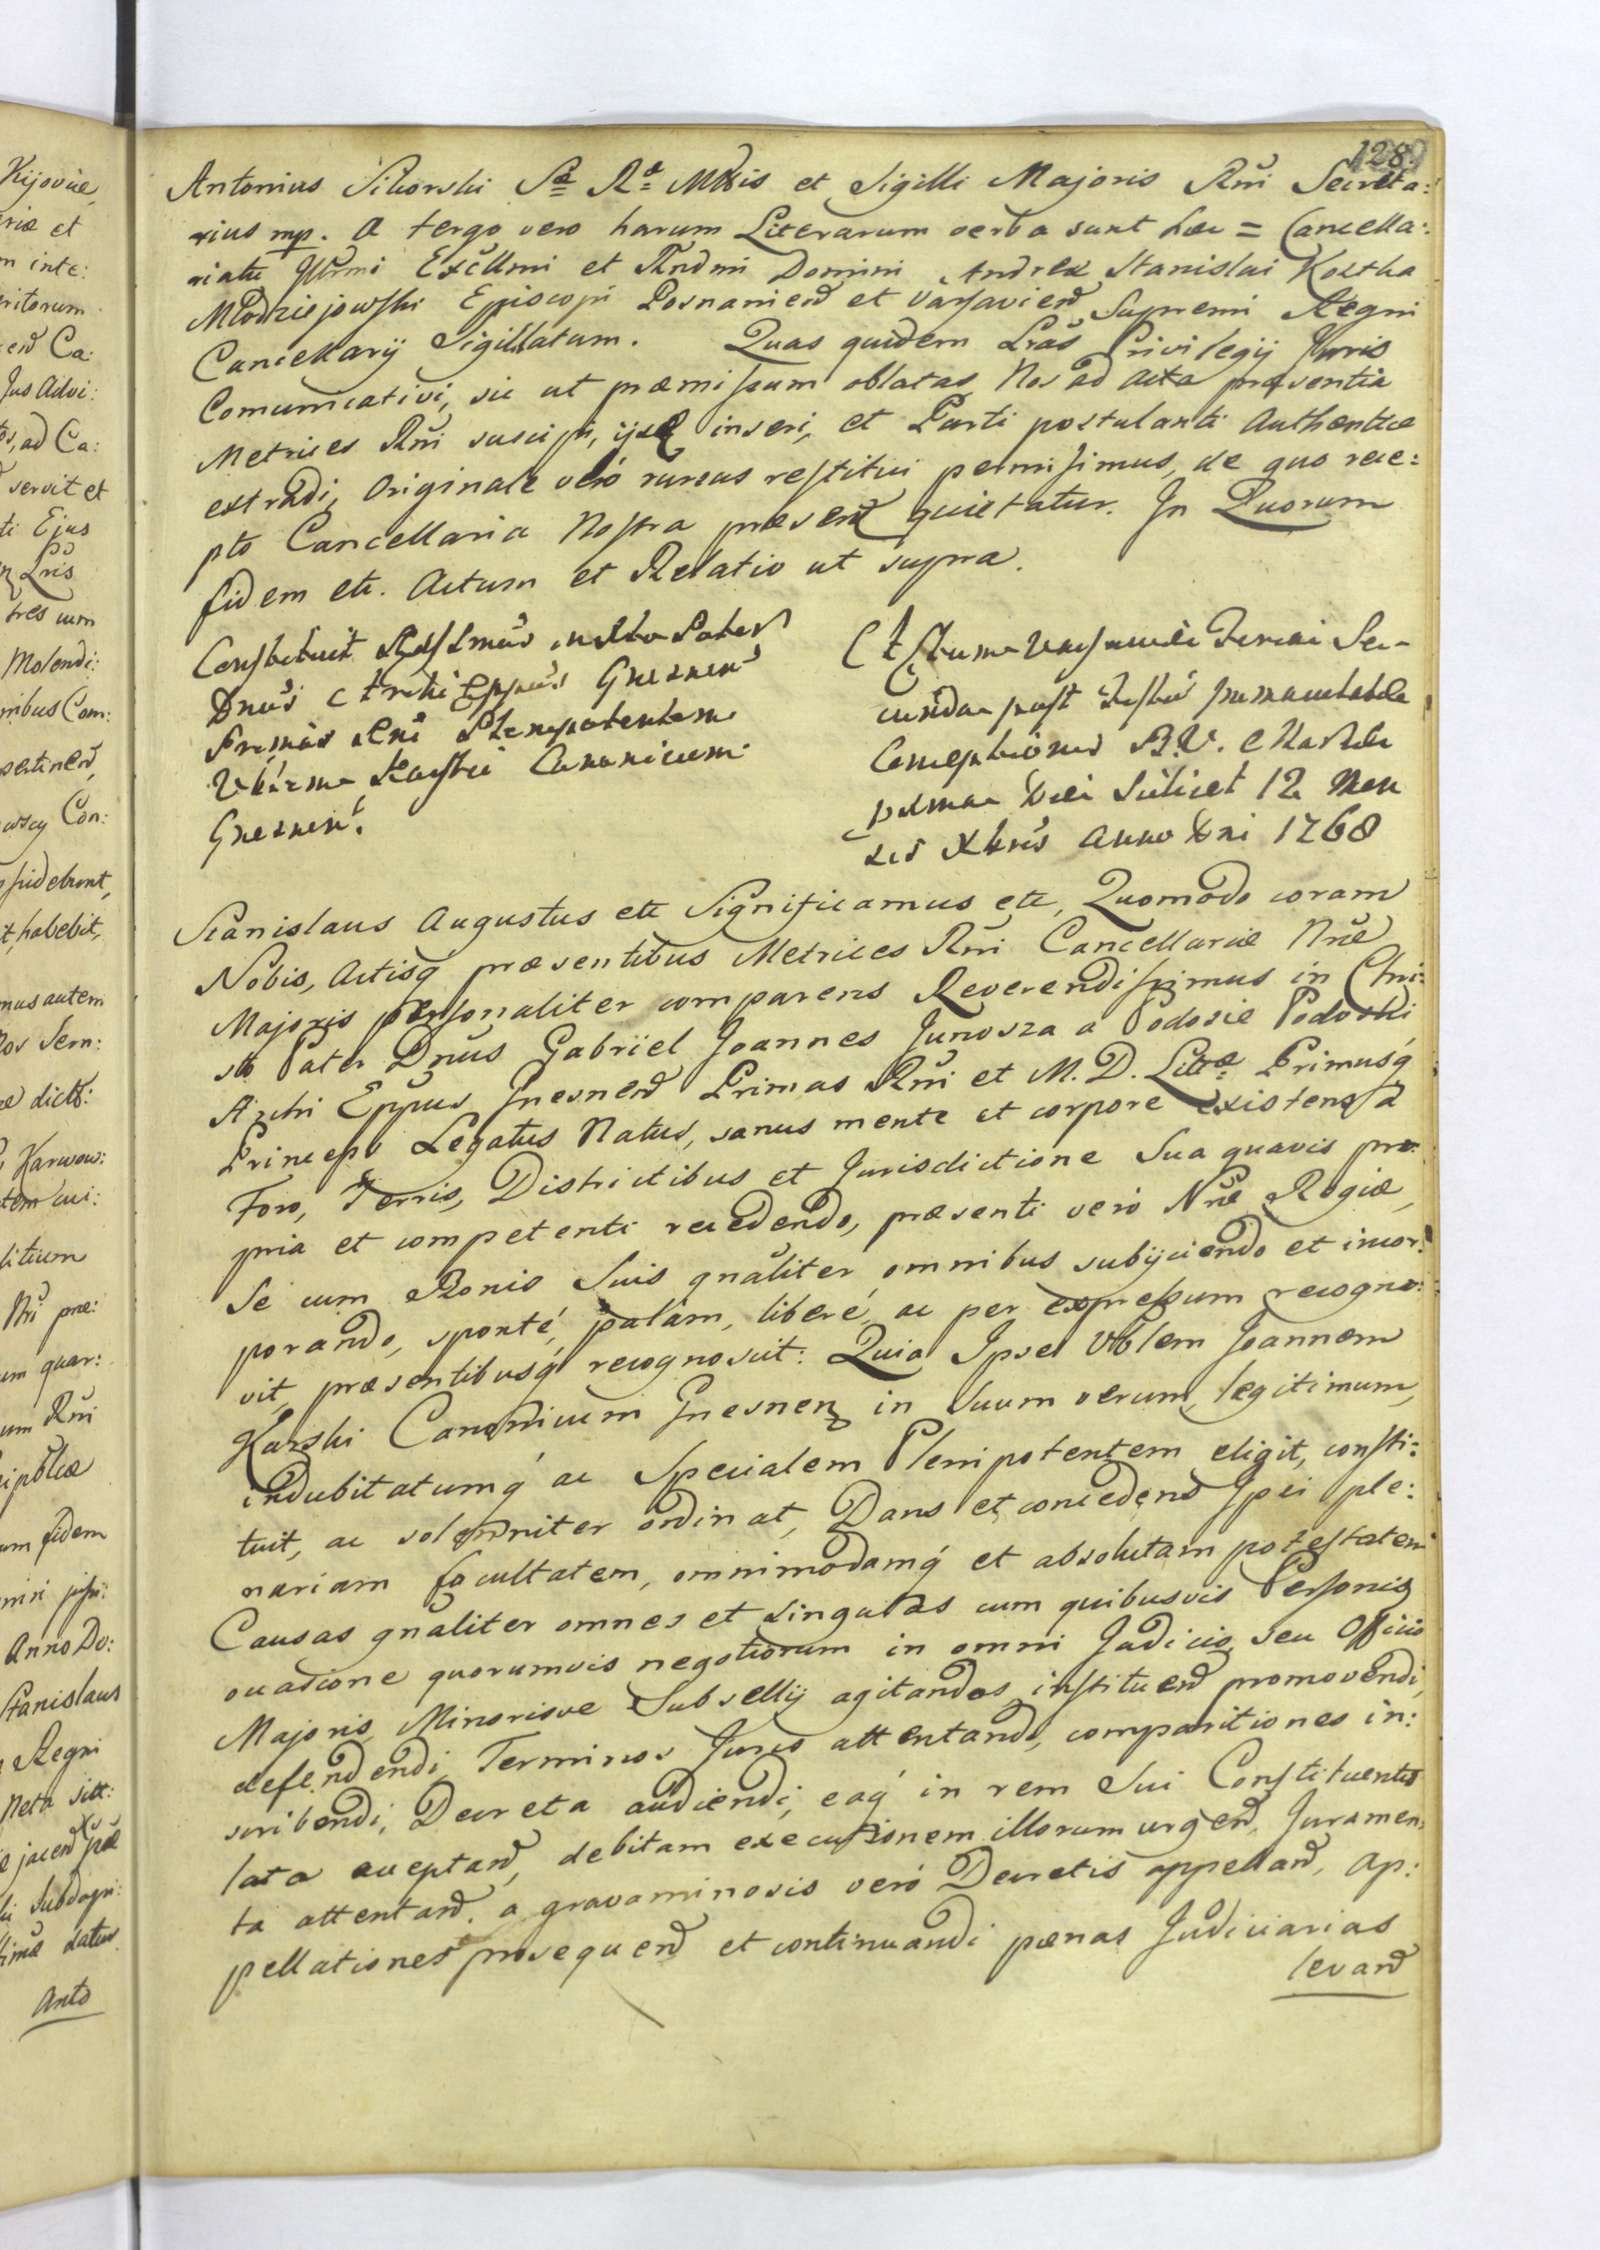 128
Antonius Sikorski Sæ Ræ Mttis et Sigilli Majoris Rñi Secreta:
rius mp. A tergo vero harum Literarum verba sunt hæc = Cancella:
riatu Illrmi Excllmi et Rndmi Domini Andreæ Stanislai Kostka
Młodziejowski Episcopi Posnanien et Varsavien Supremi Regni
Cancellarij Sigillatum. Quas quidem Lras Privilegij Juris
Comunicativi, sic ut præmissum oblatas, Nos ad Acta præsentia
Metrices Rñi suscipi, ijsq inseri, et Parti postulanti Authentice
extradi, Originale veró rursus restitui permisimus, de quo rece:
pto Cancellaria Nostra præsen quietatur. In Quorum
fidem etc. Actum et Relatio ut supra.
Constituit Rdssmus in Xto Pater
Dnus Archi Eppus Gnesnen
Primas Rni Plenipotentem
Vblem Karski Canonicum
Gnesnen.
Actum Varsaviæ Feria Se-
cunda post Festum Immaculatæ
Conceptionis B.V. Mariæ
proxima Die Scilicet 12 Men
sis Xbris Anno Dni 1768
Stanislaus Augustus etc Significamus etc, Quomodo coram
Nobis, Actisq præsentibus Metrices Rñi Cancellariæ Nræ
Majoris personaliter comparens Reverendissimus in Chri:
sto Pater Dnus Gabriel Joannes Junosza a Podosie Podoski
Archi Eppus Gnesnen Primas Rñi et M. D. Litt Primusq
Princeps Legatus Natus, sanus mente et corpore existens a
Foro, Terris, Districtibus et Jurisdictione Sua quavis pro:
pria et competenti recedendo, præsenti veró Nræ Regiæ,
Se cum Bonis Suis gnaliter omnibus subijciendo et incor:
porando, sponté, palám, liberé, ac per expressum recogno:
vit, præsentibusq recognoscit: Quia Ipse Vblem Joannem
Karski Canonicum Gnesnen in Suum verum, legitimum,
indubitatumq ac Specialem Plenipotentem eligit, consti:
tuit, ac solenniter ordinat, Dans et concedens Ipsi ple:
nariam facultatem, omnimodamq et absolutam potestatem
Causas gnaliter omnes et singulas cum quibusvis Personis
occasione quorumvis negotiorum in omni Judicio, seu Officio
Majoris, Minorisve Subsellij agitandas, instituen promovendi,
defendendi, Terminos Juris attentando, comparitiones in:
scribendi, Decreta audiendi, eaq in rem Sui Constituentis
lata acceptand, debitam executionem illorum urgen, Juramen
ta attentand, a gravaminosis veró Decretis appelland, ap:
pellationes prosequend et continuandi pænas Judiciarias
levand